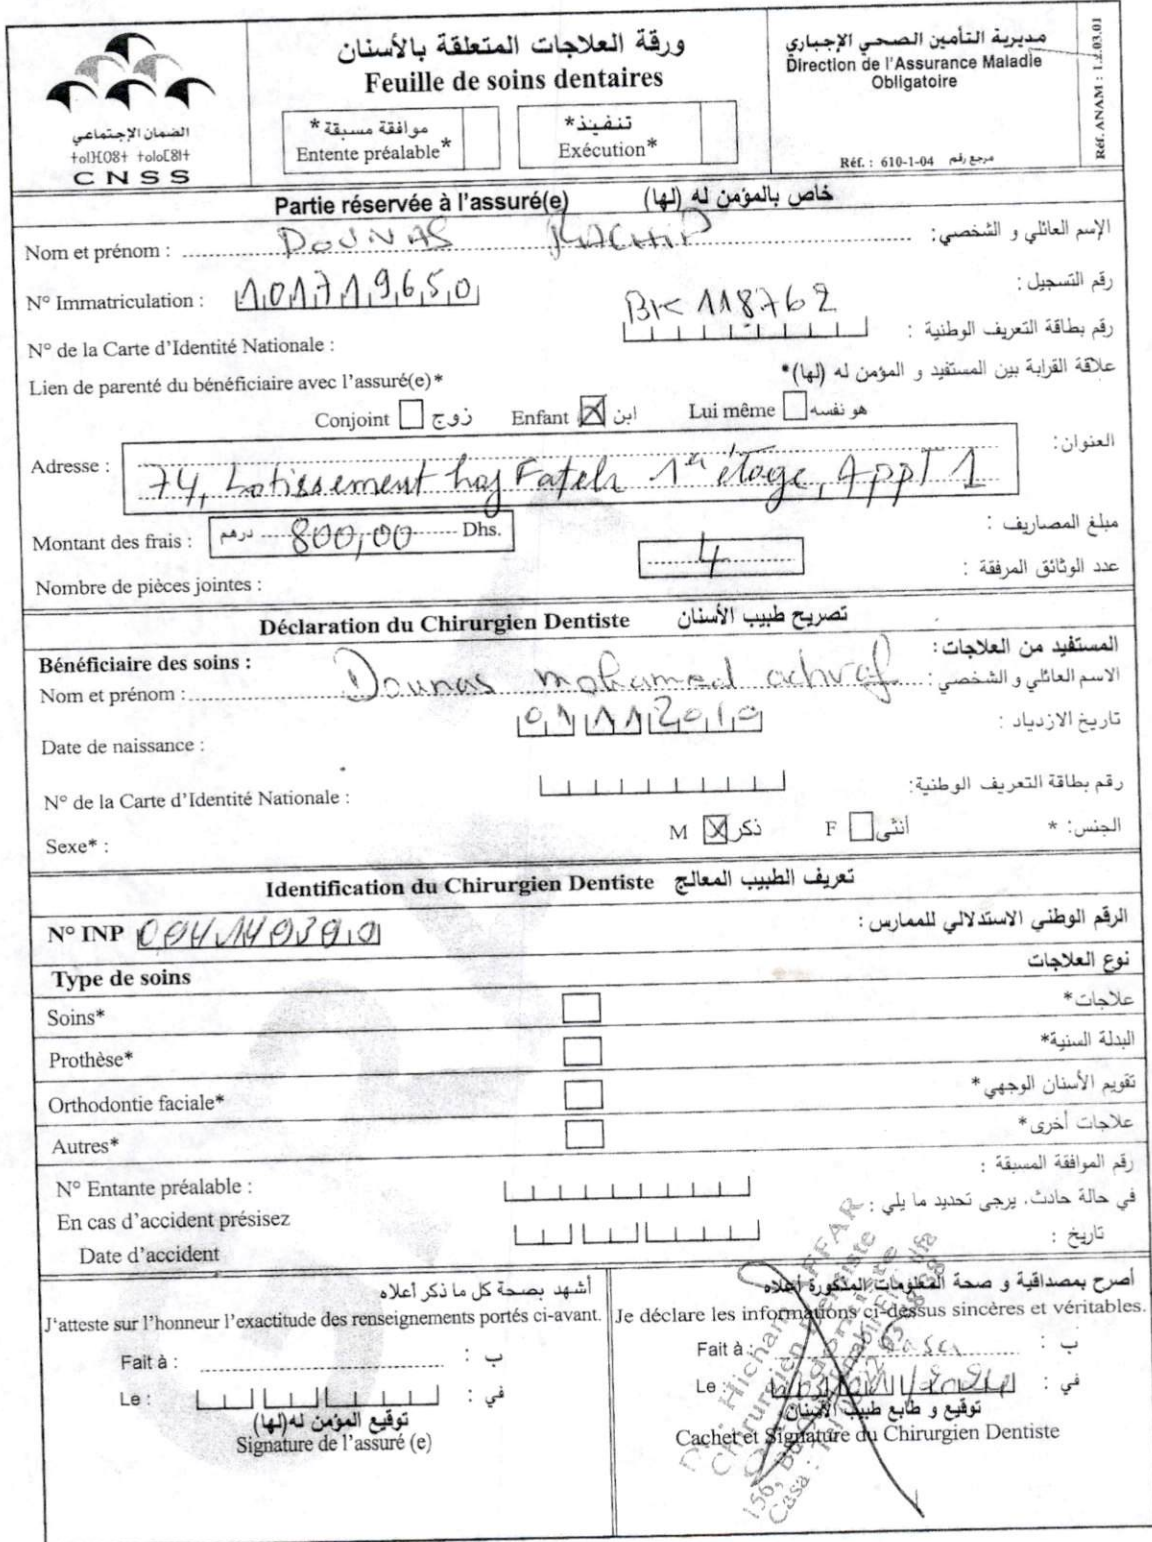 الضمان الإجتماعي
ⵜⴰⵏⴼⵓⵙⵜ ⵜⴰⵏⴰⵎⵓⵏⵜ
CNSS
ورقة العلاجات المتعلقة بالأسنان
Feuille de soins dentaires
موافقة مسبقة*
Entente préalable*
تنفيذ*
Exécution*
مديرية التأمين الصحي الإجباري
Direction de l'Assurance Maladie
Obligatoire
Réf. : 610-1-04 مرجع رقم
Réf. ANAM : 1.2.03.01
Partie réservée à l'assuré(e) خاص بالمؤمن له (لها)
Nom et prénom : DOUNAS RACHID الإسم العائلي و الشخصي:
N° Immatriculation : 101719650 رقم التسجيل :
N° de la Carte d'Identité Nationale : BK 118762 رقم بطاقة التعريف الوطنية :
Lien de parenté du bénéficiaire avec l'assuré(e)* علاقة القرابة بين المستفيد و المؤمن له (لها)*
Conjoint زوج Enfant ابن Lui même هو نفسه
Adresse : العنوان:
74, Lotissement haj Fateh 1er étage, Appt 1
Montant des frais : درهم 800,00 Dhs. مبلغ المصاريف :
Nombre de pièces jointes : 4 عدد الوثائق المرفقة :
Déclaration du Chirurgien Dentiste تصريح طبيب الأسنان
Bénéficiaire des soins : المستفيد من العلاجات:
Nom et prénom : Dounas mohamed achraf الاسم العائلي و الشخصي:
Date de naissance : 01112010 تاريخ الازدياد :
N° de la Carte d'Identité Nationale : رقم بطاقة التعريف الوطنية:
Sexe* : M ذكر F أنثى الجنس: *
Identification du Chirurgien Dentiste تعريف الطبيب المعالج
N° INP الرقم الوطني الاستدلالي للممارس :
Type de soins نوع العلاجات
Soins* علاجات*
Prothèse* البدلة السنية*
Orthodontie faciale* تقويم الأسنان الوجهي*
Autres* علاجات أخرى*
N° Entante préalable : رقم الموافقة المسبقة :
En cas d'accident présisez في حالة حادث، يرجى تحديد ما يلي :
Date d'accident تاريخ :
أشهد بصحة كل ما ذكر أعلاه
J'atteste sur l'honneur l'exactitude des renseignements portés ci-avant.
Fait à : ب :
Le : في :
توقيع المؤمن له(لها)
Signature de l'assuré (e)
أصرح بمصداقية و صحة المعلومات المذكورة أعلاه
Je déclare les informations ci-dessus sincères et véritables.
Fait à Casa ب :
Le في :
توقيع و طابع طبيب الأسنان
Cachet et Signature du Chirurgien Dentiste